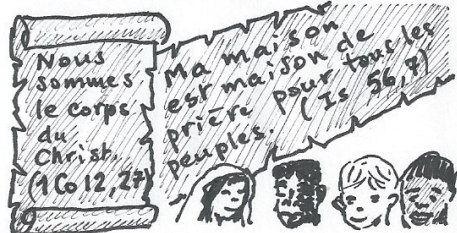 Nous
sommes
le corps
du
Christ.
(1 Co 12, 27)
Ma maison
est maison de
prière pour tous les
peuples. (Is 56,7)